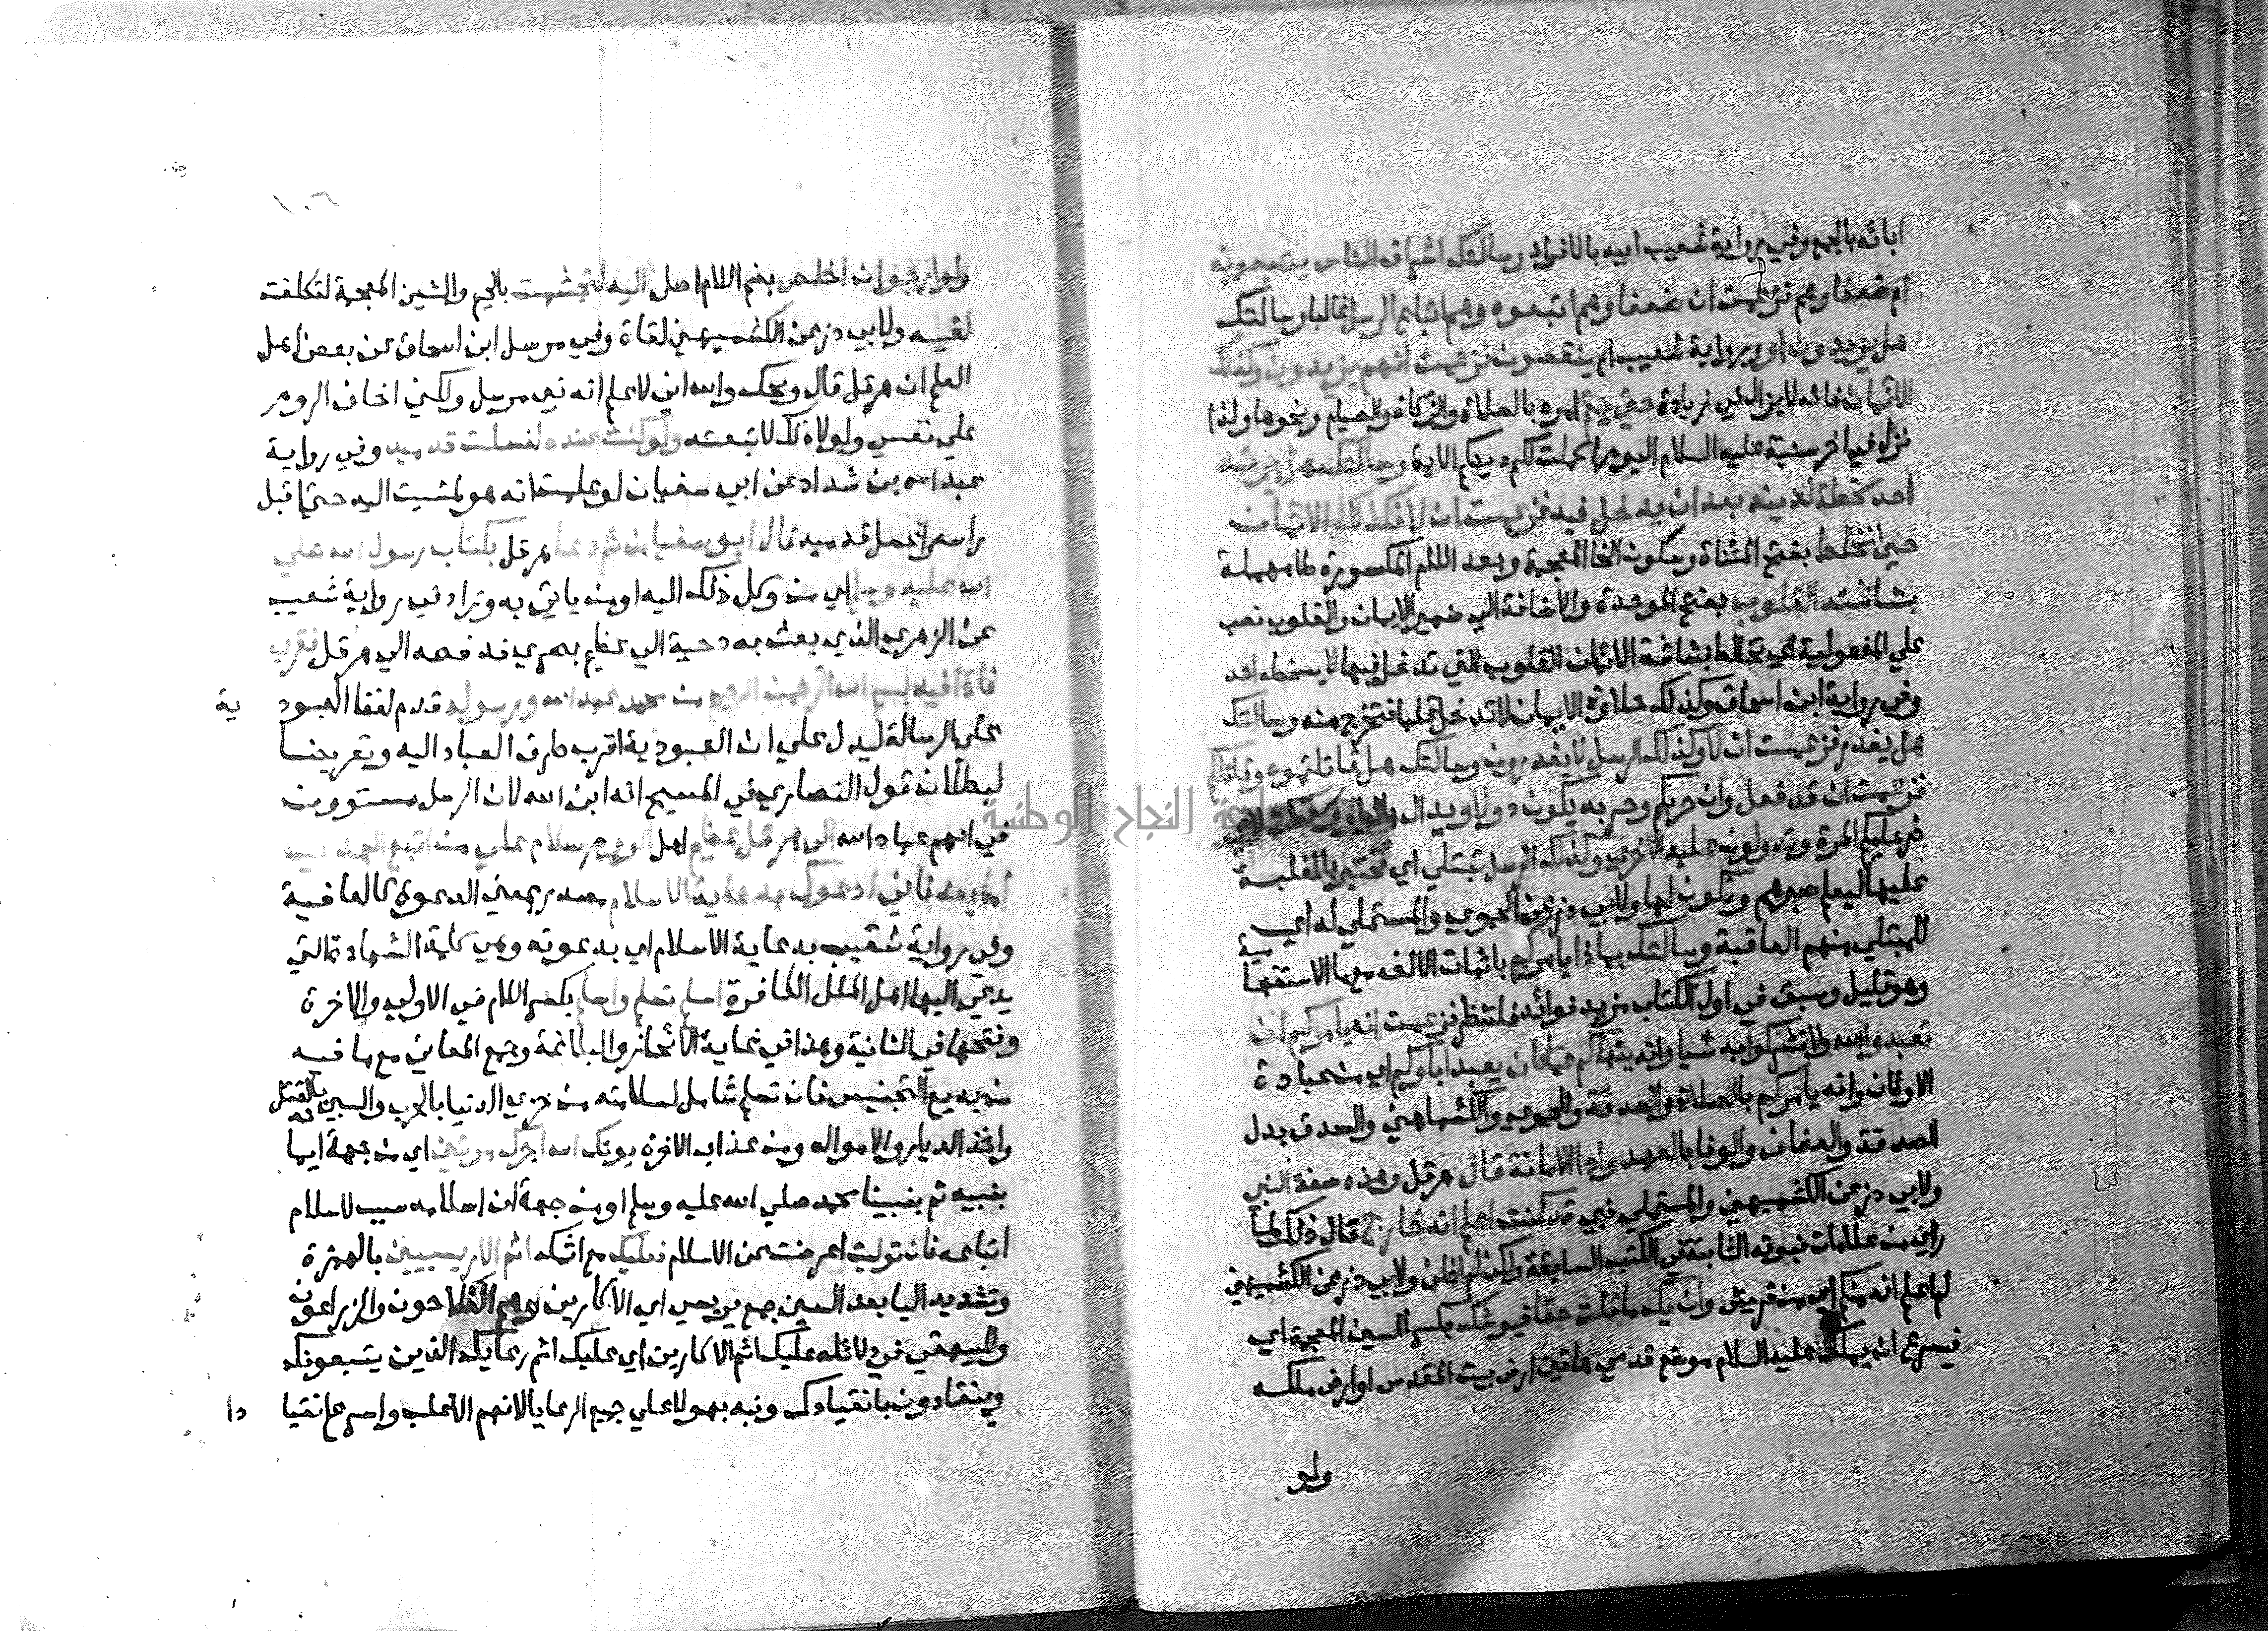 ابائه بالجمع وفي رواية شعيب ابيه بالافراد وسالتك اشراف الناس يتبعونه
ام ضعفاوهم فزعمت ان ضعفاوهم اتبعوه وهم اتباع الرسل غالبا وسالتك
هل يزيدون او وبرواية شعيب ام ينقصون فزعمت انهم يزيدون وكذلك
الايمان فانه لايزال في زيادة حتي يتم امره بالصلاة والزكاة والصيام ونحوها ولذا
نزل في اخر سنية عليه السلام اليوم اكملت لكم دينكم الاية وسالتك هل يرتد
احد سخطة لدينه بعد ان يدخل فيه فزعمت ان لا فكذلك الايمان
حين تخلط بفتح المثناة وسكون الخا المعجمة وبعد اللام المكسورة طا مهملة
بشاشته القلوب بفتح الموحدة والاضافة الي ضمير الايمان والقلوب نصب
علي المفعولية اي تخالط بشاشة الايمان القلوب التي تدخل فيها لا يسخطه احد
وفي رواية ابن اسحاق وكذلك حلاوة الايمان لا تدخل قلبا فتخرج منه وسالتك
هل يغدر فزعمت ان لا وكذلك الرسل لا يغدرون وسالتك هل قاتلتموه وقاتلكم
فزعمت ان قد فعل وان حربكم وحربه يكون دولا ويدال
عليكم المرة وتدالون عليه الاخري وكذلك الرسل تبتلي اي تختبر بالغلبة
عليها ليعلم صبرهم وتكون لها ولابي ذر عن الحموي والمستملي له اي
للمبتلي منهم العاقبة وسالتك بماذا يامركم باثبات الالف مع ما الاستفها
مية
وهو قليل وسبق في اول الكتاب مزيد فوائد فلتنظر فزعمت انه يامركم ان
تعبدوا الله ولا تشركوا به شيا وانه ينهاكم عما كان يعبد اباوكم اي من عبادة
الاوثان وانه يامركم بالصلاة والصدقة والحموي والكشميهني والصدق بدل
الصدقة والعفاف والوفا بالعهد وادا الامانة قال هرقل وهذه صفة النبي
ولابي ذر عن الكشميهني والمستملي نبي قد كنت اعلم انه خارج قال ذلك لما
راي من علامات نبوته الثابتة في الكتب السابقة ولكن لم اظن ولابي ذر عن الكشميهني
لم اعلم انه منكم اي من قريش وان يك ما قلت حقا فيوشك بكسر الشين المعجمة اي
فيسرع ان يملك عليه السلام موضع قدمي هاتين ارض بيت المقدس او ارض ملكه
ولو
١٠٦
ولو ارجو ان اخلص بضم اللام اصل اليه لتجشمت بالجيم والشين المعجمة لتكلفت
لقيه ولابي ذر عن الكشميهني لقاة وفي مرسل ابن اسحاق عن بعض اهل
العلم ان هرقل قال ويحك والله اني لاعلم انه نبي مرسل ولكني اخاف الروم
علي نفسي ولولا ذلك لاتبعته ولو كنت عنده لغسلت قدميه وفي رواية
عبد الله بن شداد عن ابي سفيان لو علمت انه هو لمشيت اليه حتي اقبل
راسه واغسل قدميه قال ابو سفيان ثم دعا هرقل بكتاب رسول الله صلي
الله عليه وسلم اي من وكل ذلك اليه او من ياتي به وزاد في رواية شعيب
عن الزهري الذي بعث به دحية الي عظيم بصري فدفعه الي هرقل فقري
فاذا فيه بسم الله الرحمن الرحيم من محمد عبد الله ورسوله قدم لفظ العبود
ية
علي الرسالة ليدل علي ان العبودية اقرب طرق العباد اليه وتعريضا
لبطلان قول النصاري في المسيح انه ابن الله لان الرسل مستوون
في انهم عباد الله الي هرقل عظيم اهل الروم سلام علي من اتبع الهدي
اما بعد فاني ادعوك بدعاية الاسلام مصدر بمعني الدعوة كالعافية
وفي رواية شعيب بدعاية الاسلام اي بدعوته وهي كلمة الشهادة التي
يدعي اليها اهل الملل الكافرة اسلم تسلم واسلم بكسر اللام في الاولي والاخرة
وفتحها في الثانية وهذا في غاية الايجاز والبلاغة وجمع المعاني مع ما فيه
من بديع التجنيس فان تسلم شامل لسلامته من خزي الدنيا بالحرب والسبي بالقتل
واخذ الديار والاموال ومن عذاب الاخرة يوتك الله اجرك مرتين اي من جهة ايما
نه
بنبيه ثم بنبينا محمد صلي الله عليه وسلم او من جهة ان اسلامه سبب لاسلام
اتباعه فان توليت اعرضت عن الاسلام فعليك مع اثمك اثم الاريسيين بالهمزة
وتشديد اليا بعد السين جمع يريسي اي الاكارين وهم الفلاحون والزراعون
والبيهقي في دلائله عليك اثم الاكارين اي عليك اثم رعاياك الذين يتبعونك
وينقادون بانقيادك ونبه بهولا علي جميع الرعايا لانهم الاغلب واسرع انقيا
دا